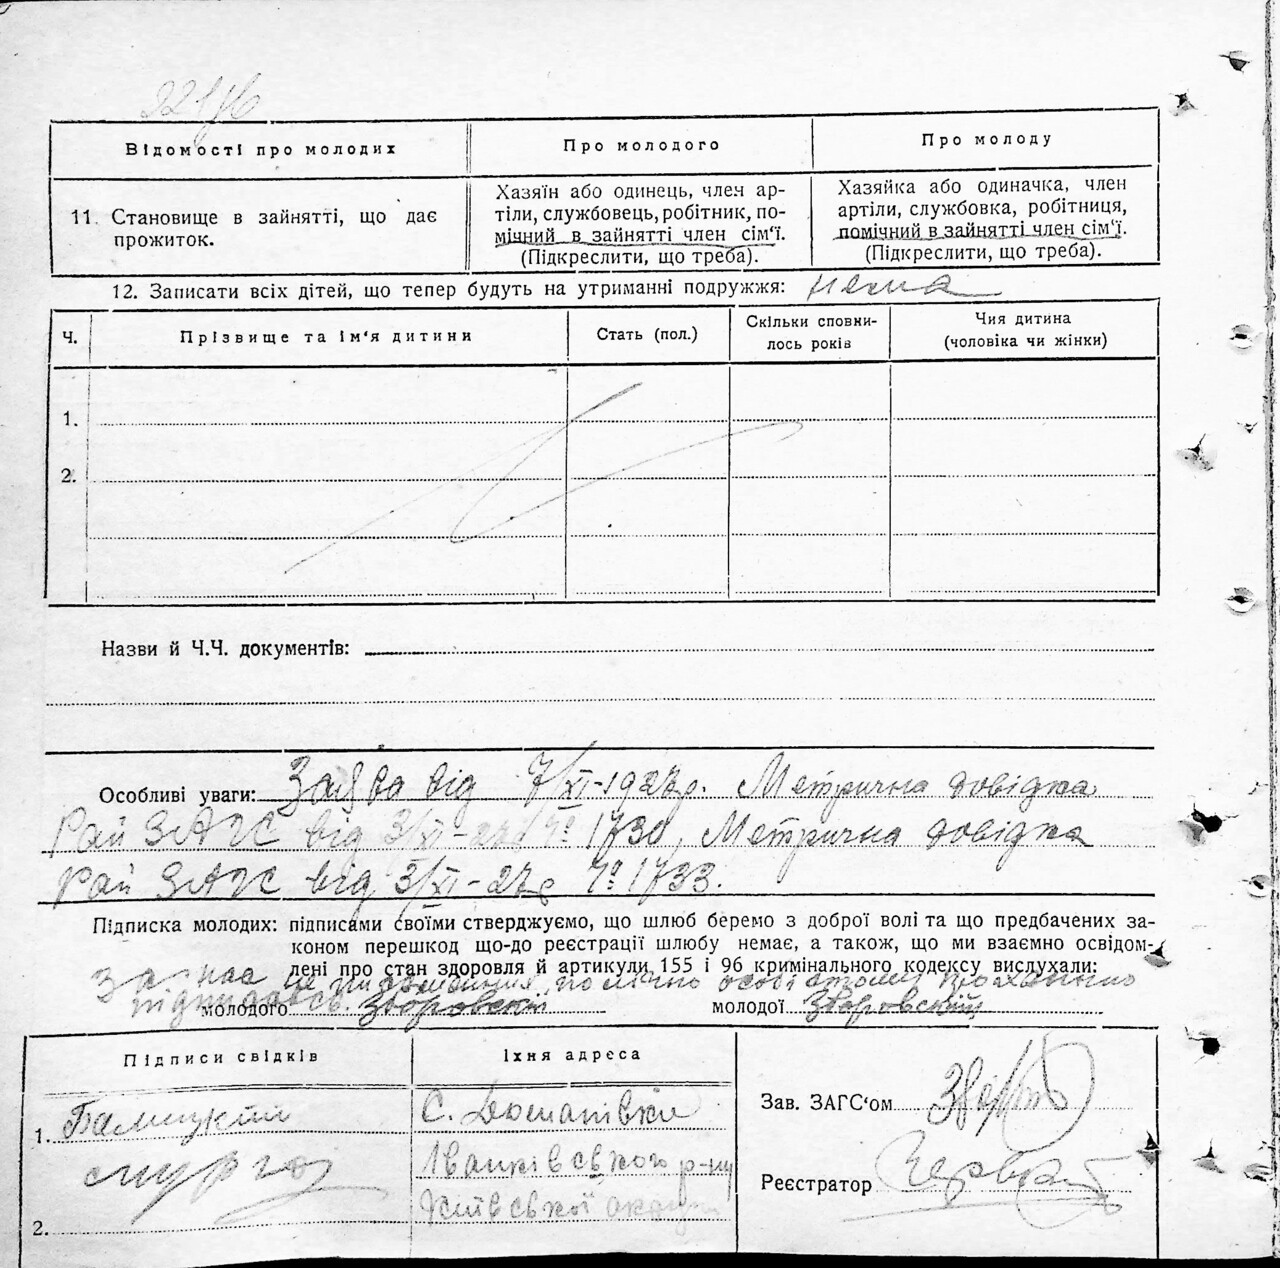 Відомості про молодих
Про молодого
Про молоду
11. Становище в зайнятті, що дає
прожиток.
Хазяїн або одинець, член ар-
тіли, службовець, робітник, по-
мічний в зайнятті член сім'ї.
(Підкреслити, що треба).
Хазяйка або одиначка, член
артіли, службовка, робітниця,
помічний в зайнятті член сім'ї.
(Підкреслити, що треба).
12. Записати всіх дітей, що тепер будуть на утриманні подружжя: нема
Ч.
Прізвище та ім'я дитини
Стать (пол.)
Скільки сповни-
лось років
Чия дитина
(чоловіка чи жінки)
1.
2.
Назви й Ч.Ч. документів:
Особливі уваги: Заява від 7/XI-1927р. Метрична довідка
Рай ЗАГС від 3/XI-27 № 1730, Метрична довідка
Рай ЗАГС від 3/XI-27р № 1733.
Підписка молодих: підписами своїми стверджуємо, що шлюб беремо з доброї волі та що предбачених за-
коном перешкод що-до реєстрації шлюбу немає, а також, що ми взаємно освідом-
лені про стан здоровля й артикули 155 і 96 кримінального кодексу вислухали:
молодого Зборовский
молодої Зборовский
Підписи свідків
Їхня адреса
1.
С.
Іванківського р-ну
Київської округи
2.
Зав. ЗАГС'ом
Реєстратор